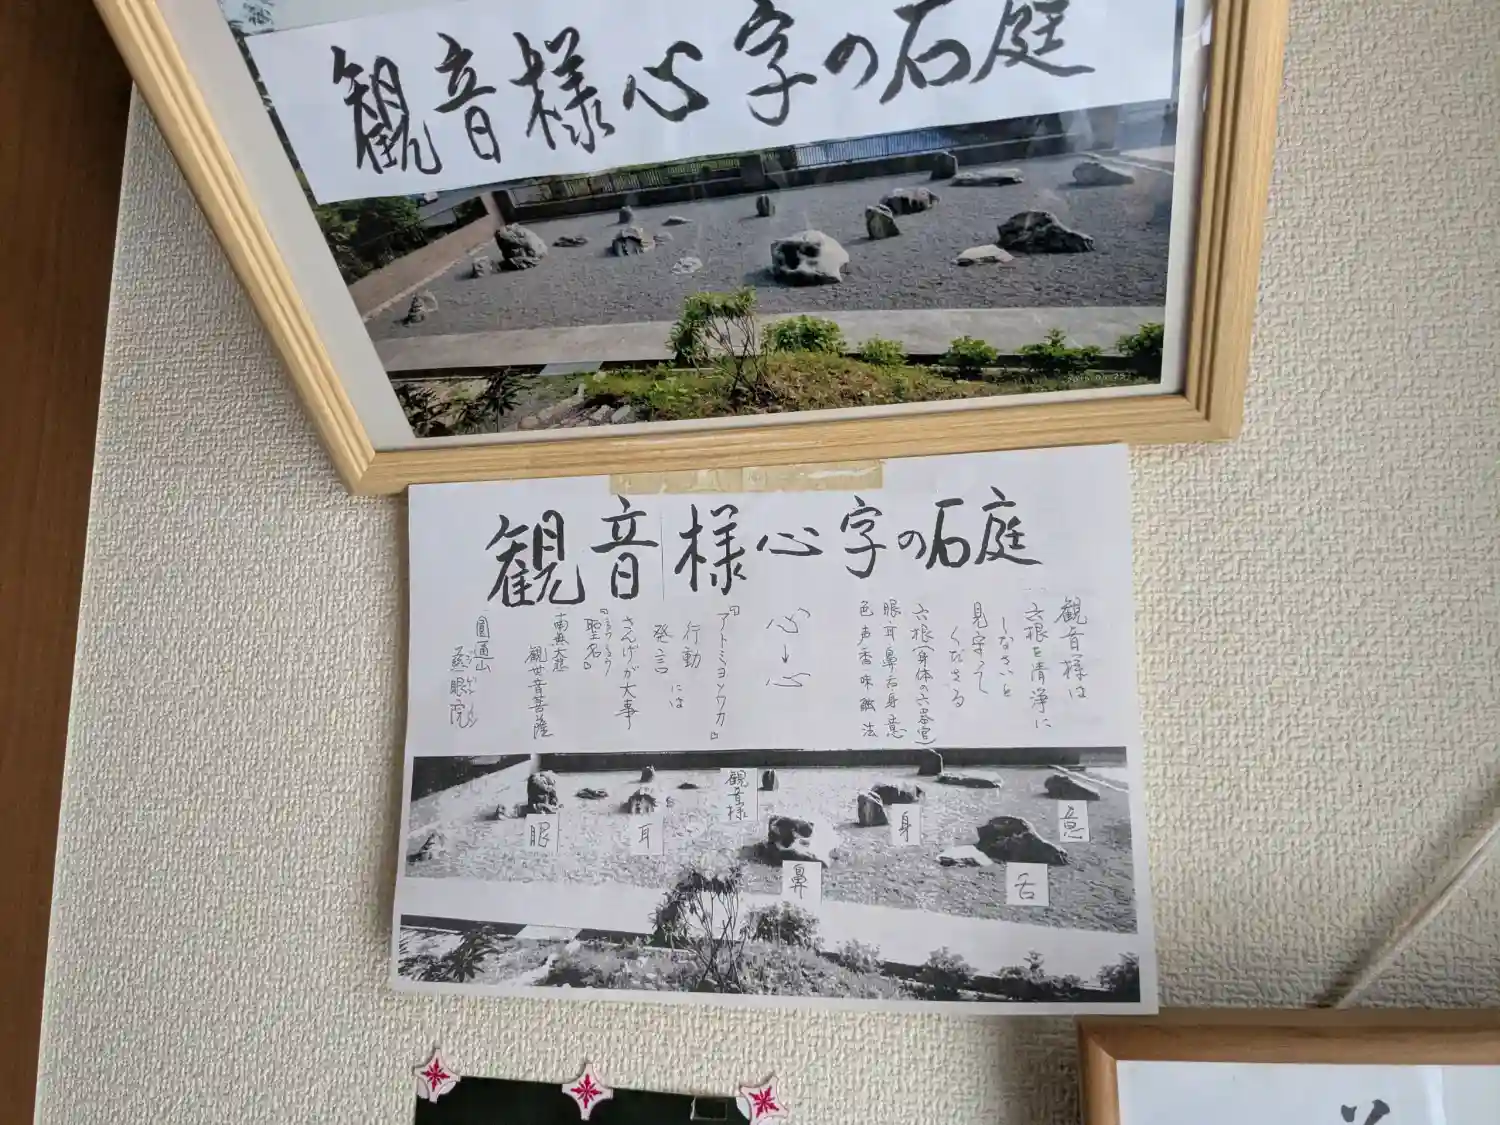 観音様心字の石庭
観音様心字の石庭
観音様は
六根を清浄に
しなさいと
見守って
くださる
六根(身体の六器官)
眼耳鼻舌身意
色声香味触法
心→心
『アトミヨソワカ』
行動
発言には
さんげが大事
『聖名』
南無大慈
観世音菩薩
圓通山
慈眼院
観音様
眼
耳
鼻
身
舌
意